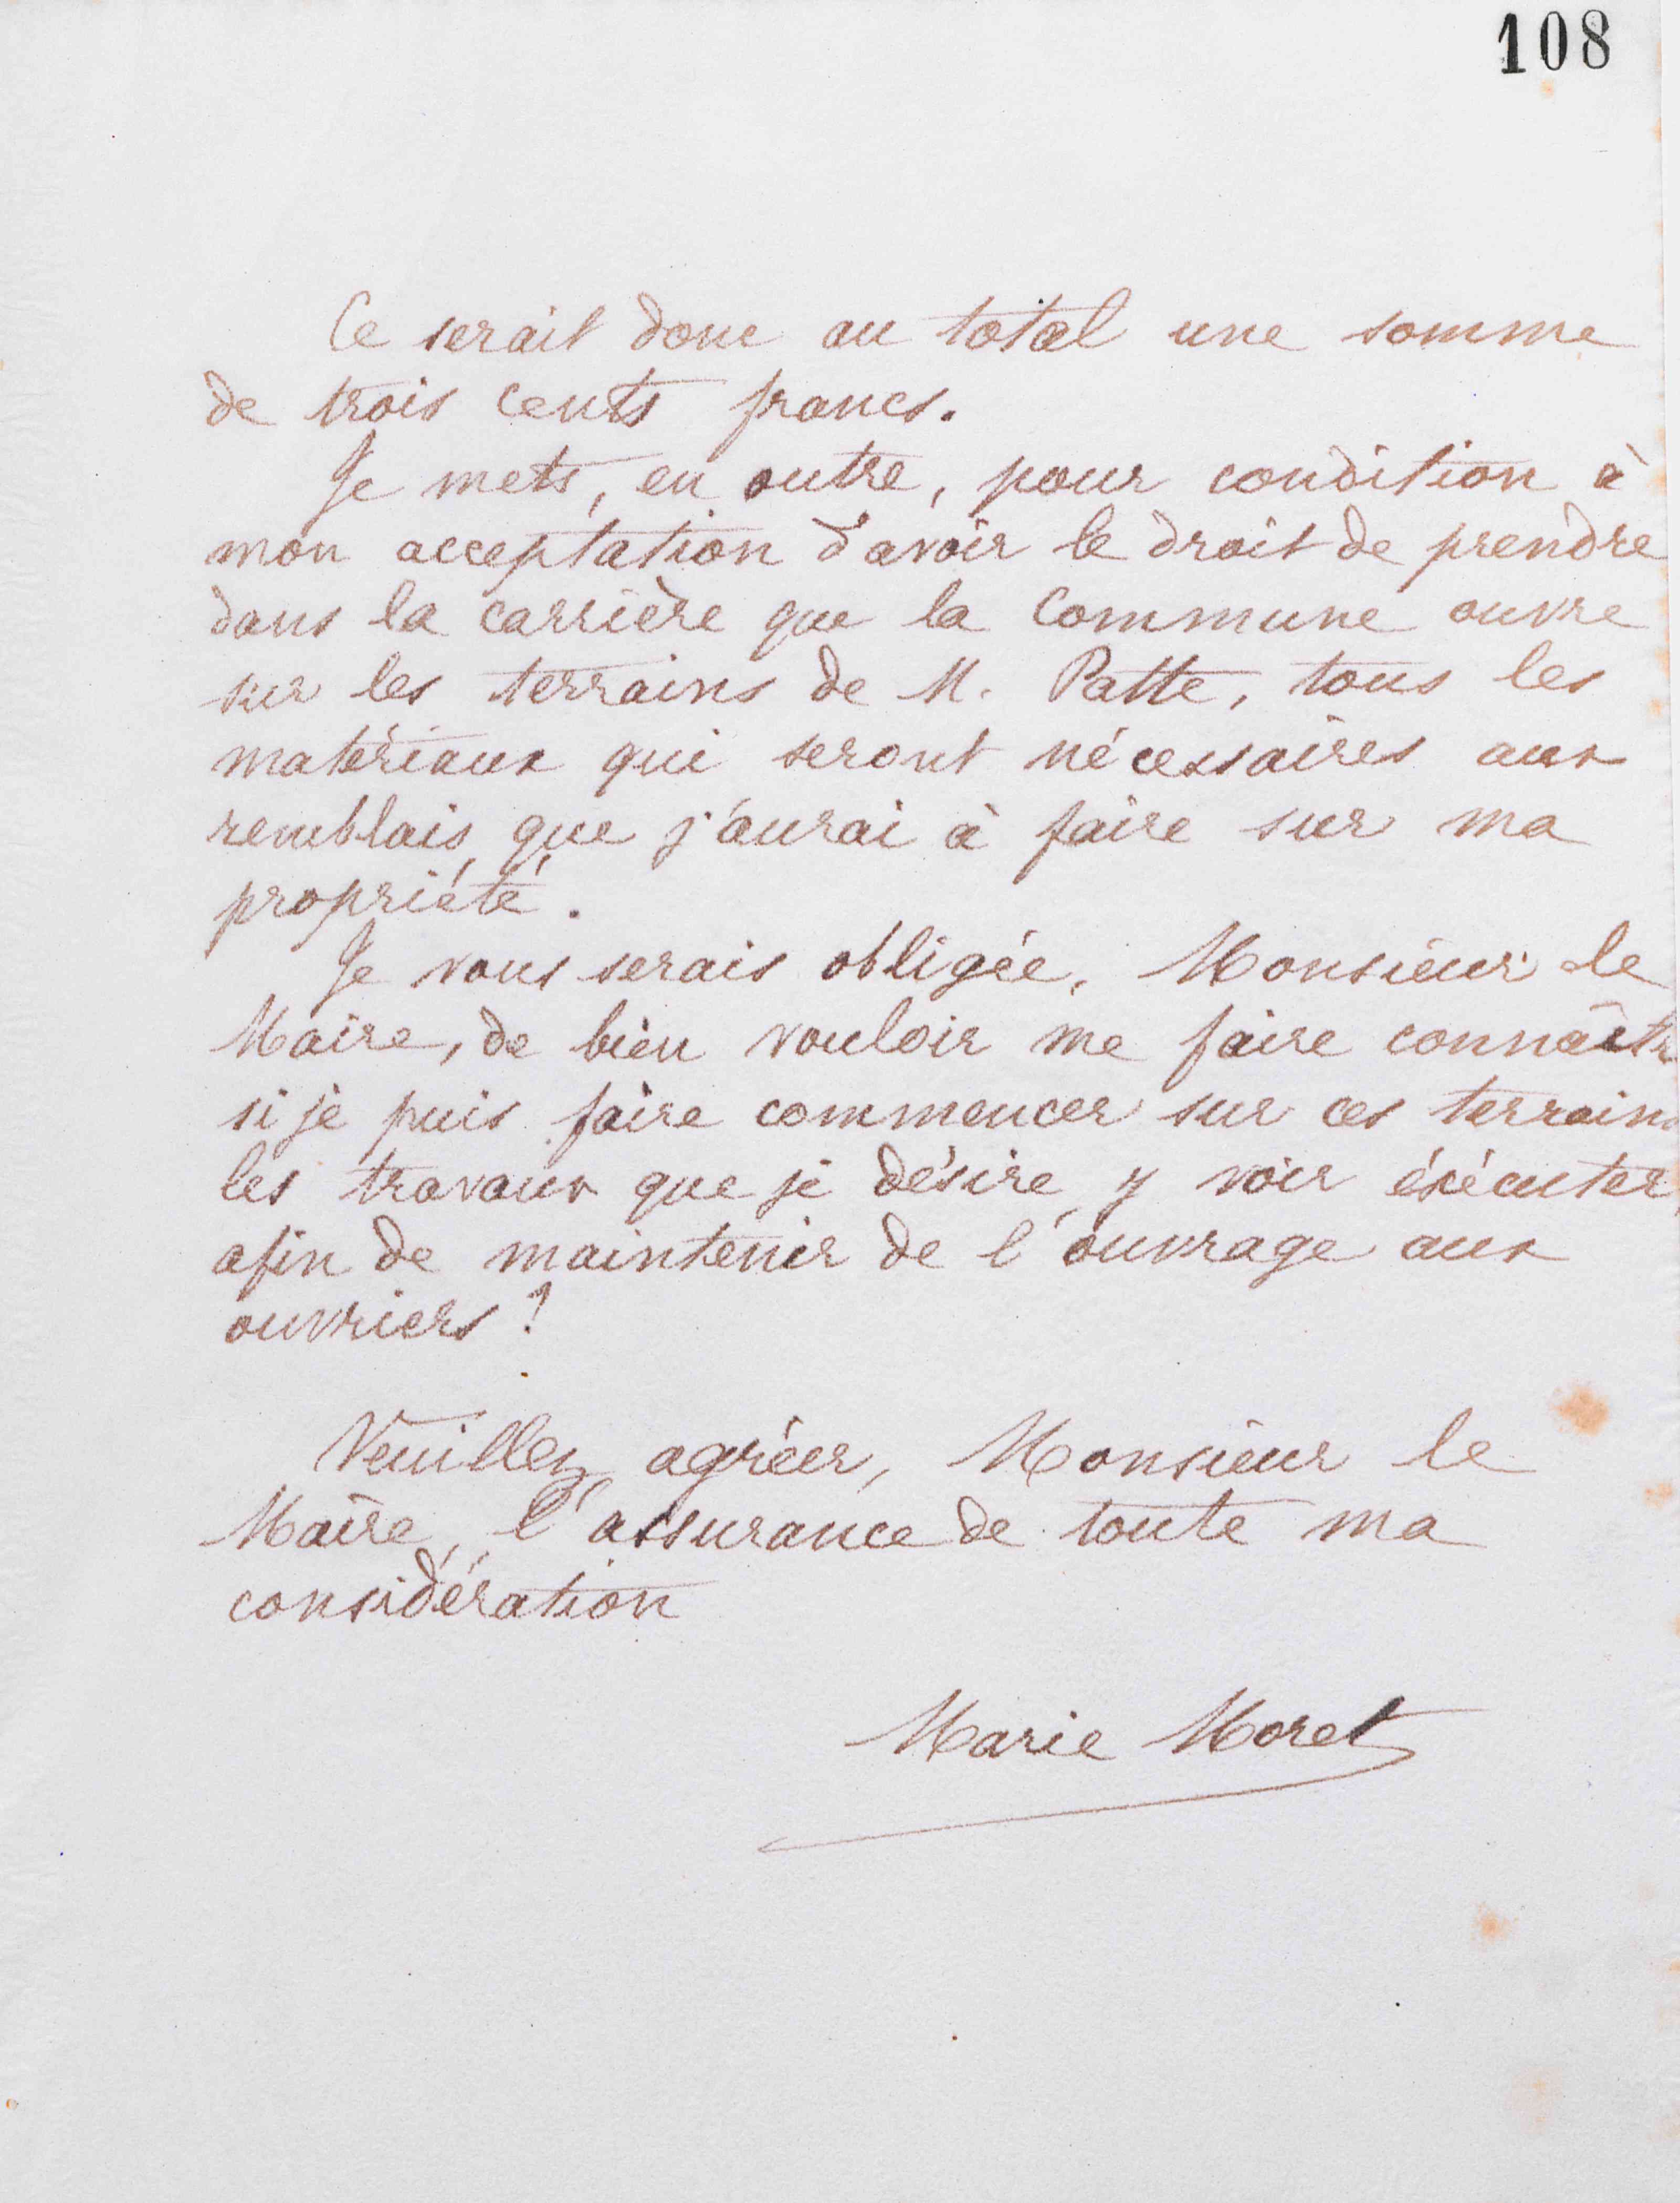 108
Ce serait donc au total une somme
de trois cents francs.
Je mets, en outre, pour condition à
mon acceptation d'avoir le droit de prendre
dans la carrière que la Commune ouvre
sur les terrains de M. Patte, tous les
matériaux qui seront nécessaires aux
remblais que j'aurai à faire sur ma
propriété.
Je vous serais obligée, Monsieur le
Maire, de bien vouloir me faire connaître
si je puis faire commencer sur ces terrains
les travaux que je désire y voir éxécuter,
afin de maintenir de l'ouvrage aux
ouvriers ?
Veuillez agréer, Monsieur le
Maire, l'assurance de toute ma
considération
Marie Moret